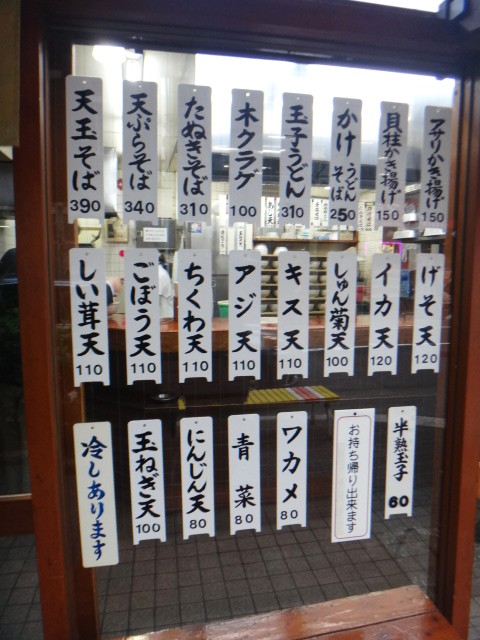 天玉そば 390
天ぷらそば 340
たぬきそば 310
木クラゲ 100
玉子うどん 310
かけ うどん そば 250
貝柱かき揚げ 150
アサリかき揚げ 150
しい茸天 110
ごぼう天 110
ちくわ天 110
アジ天 110
キス天 110
しゅん菊天 100
イカ天 120
げそ天 120
冷しあります
玉ねぎ天 100
にんじん天 80
青菜 80
ワカメ 80
お持ち帰り出来ます
半熟玉子 60